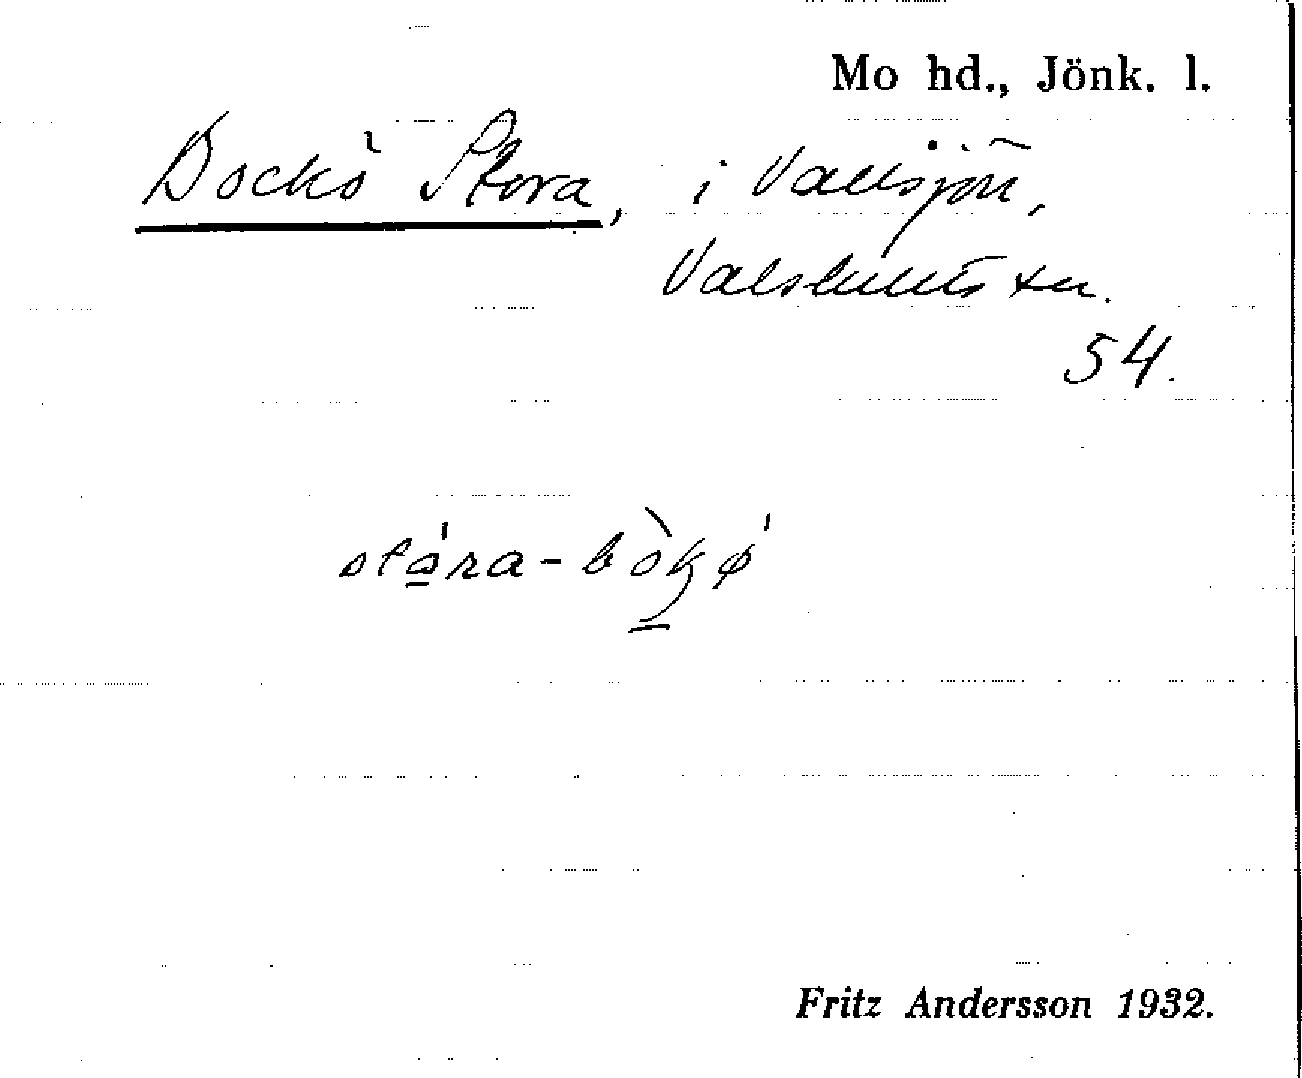 Mo hd., Jönk. l.
Bockö Stora, i Vallsjön,
Valshults sn.
54.
stára-bòkø
Fritz Andersson 1932.